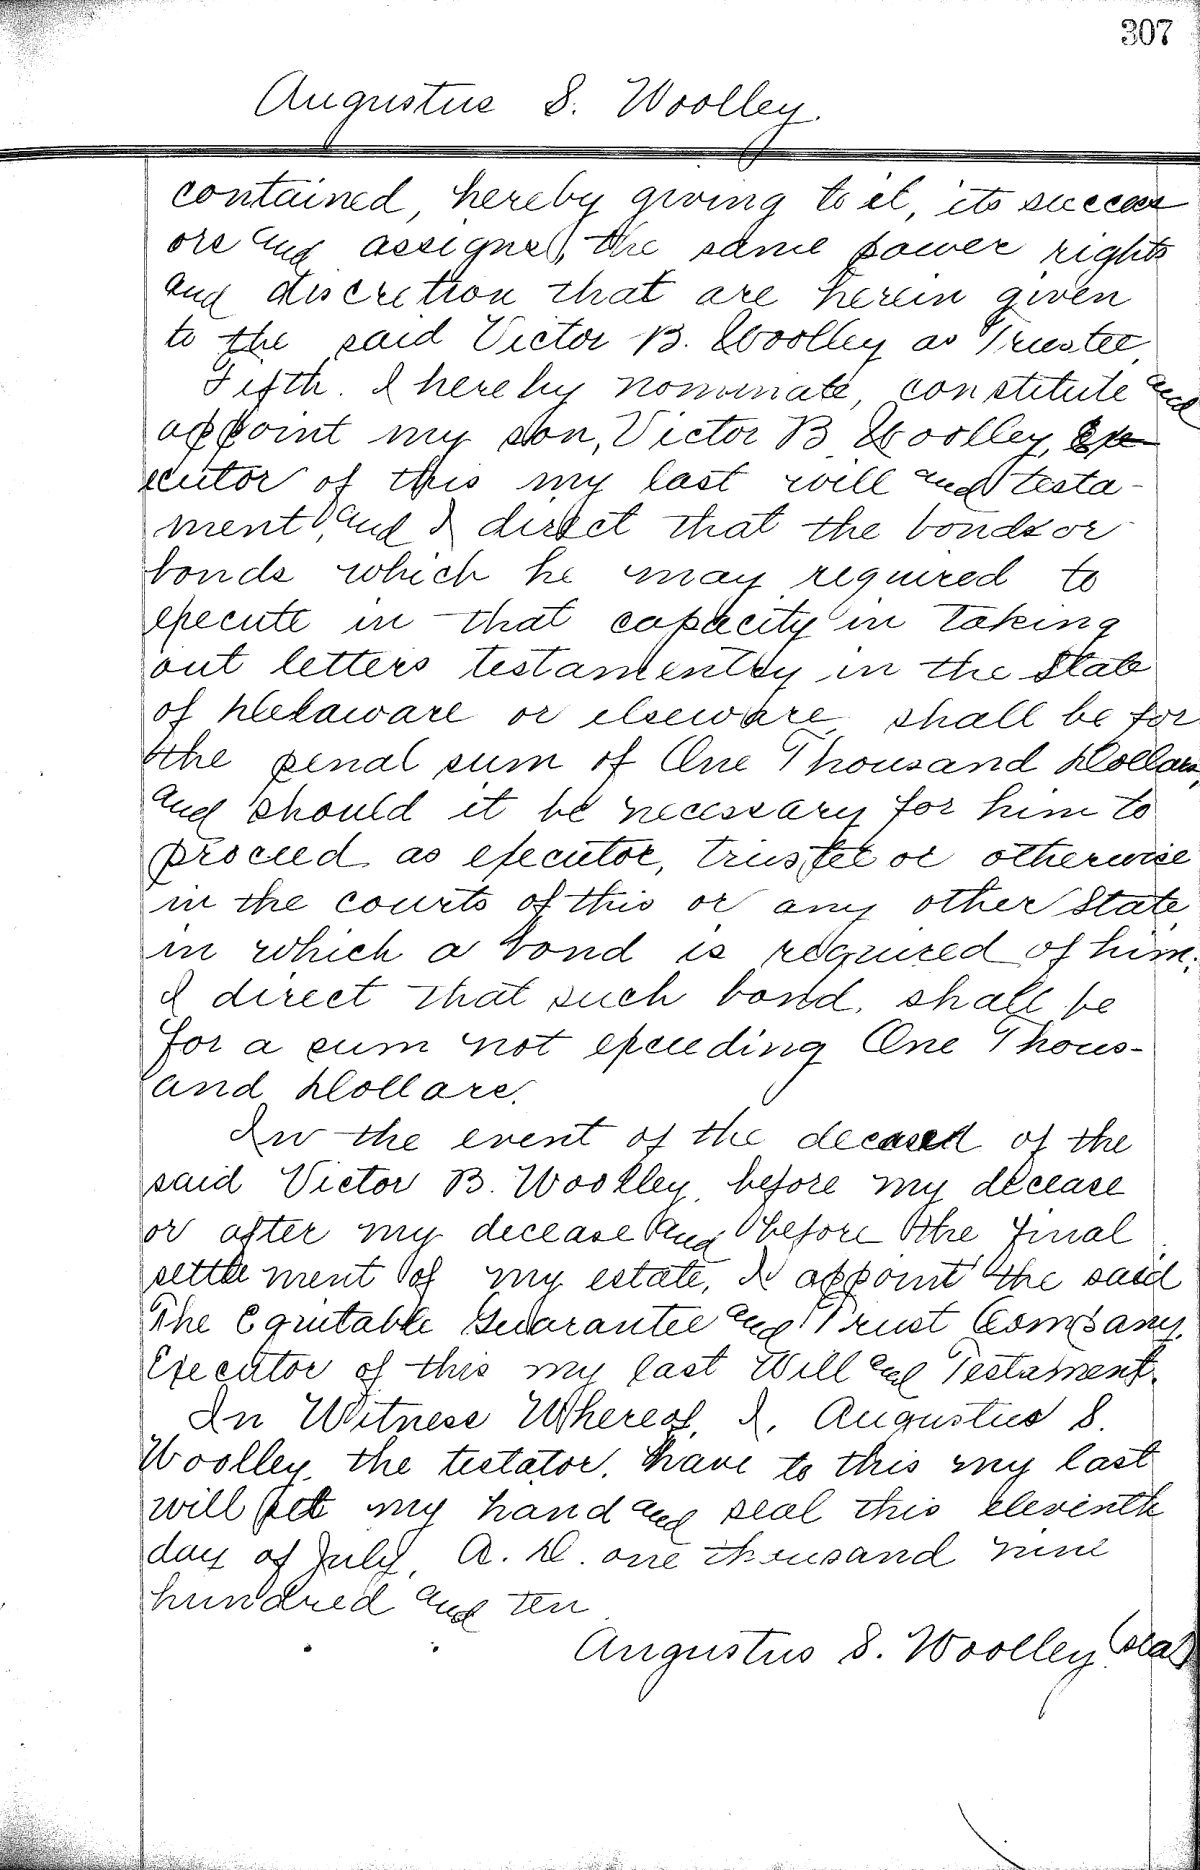 307
Augustus S. Woolley.
contained, hereby giving to it, its success
ors and assigns, the same power rights
and discretion that are herein given
to the said Victor B. Woolley as Trustee.
Fifth. I hereby nominate, constitute and
appoint my son, Victor B. Woolley, Ex-
ecutor of this my last will and testa-
ment, and I direct that the bonds or
bonds which he may required to
execute in that capacity in taking
out letters testamentry in the State
of Delaware or elseware shall be for
the penal sum of One Thousand Dollars,
and should it be necessary for him to
proceed as executor, trustee or otherwise
in the courts of this or any other State
in which a bond is required of him;
I direct that such bond, shall be
for a sum not exceeding One Thous-
and Dollars.
In the event of the deceased of the
said Victor B. Woolley, before my decease
or after my decease and before the final
settlement of my estate, I appoint the said
The Equitable Guarantee and Trust Company,
Executor of this my last Will and Testament.
In Witness Whereof, I, Augustus S.
Woolley, the testator, have to this my last
will set my hand and seal this eleventh
day of July, A. D. one thousand nine
hundred and ten
Augustus S. Woolley (seal)